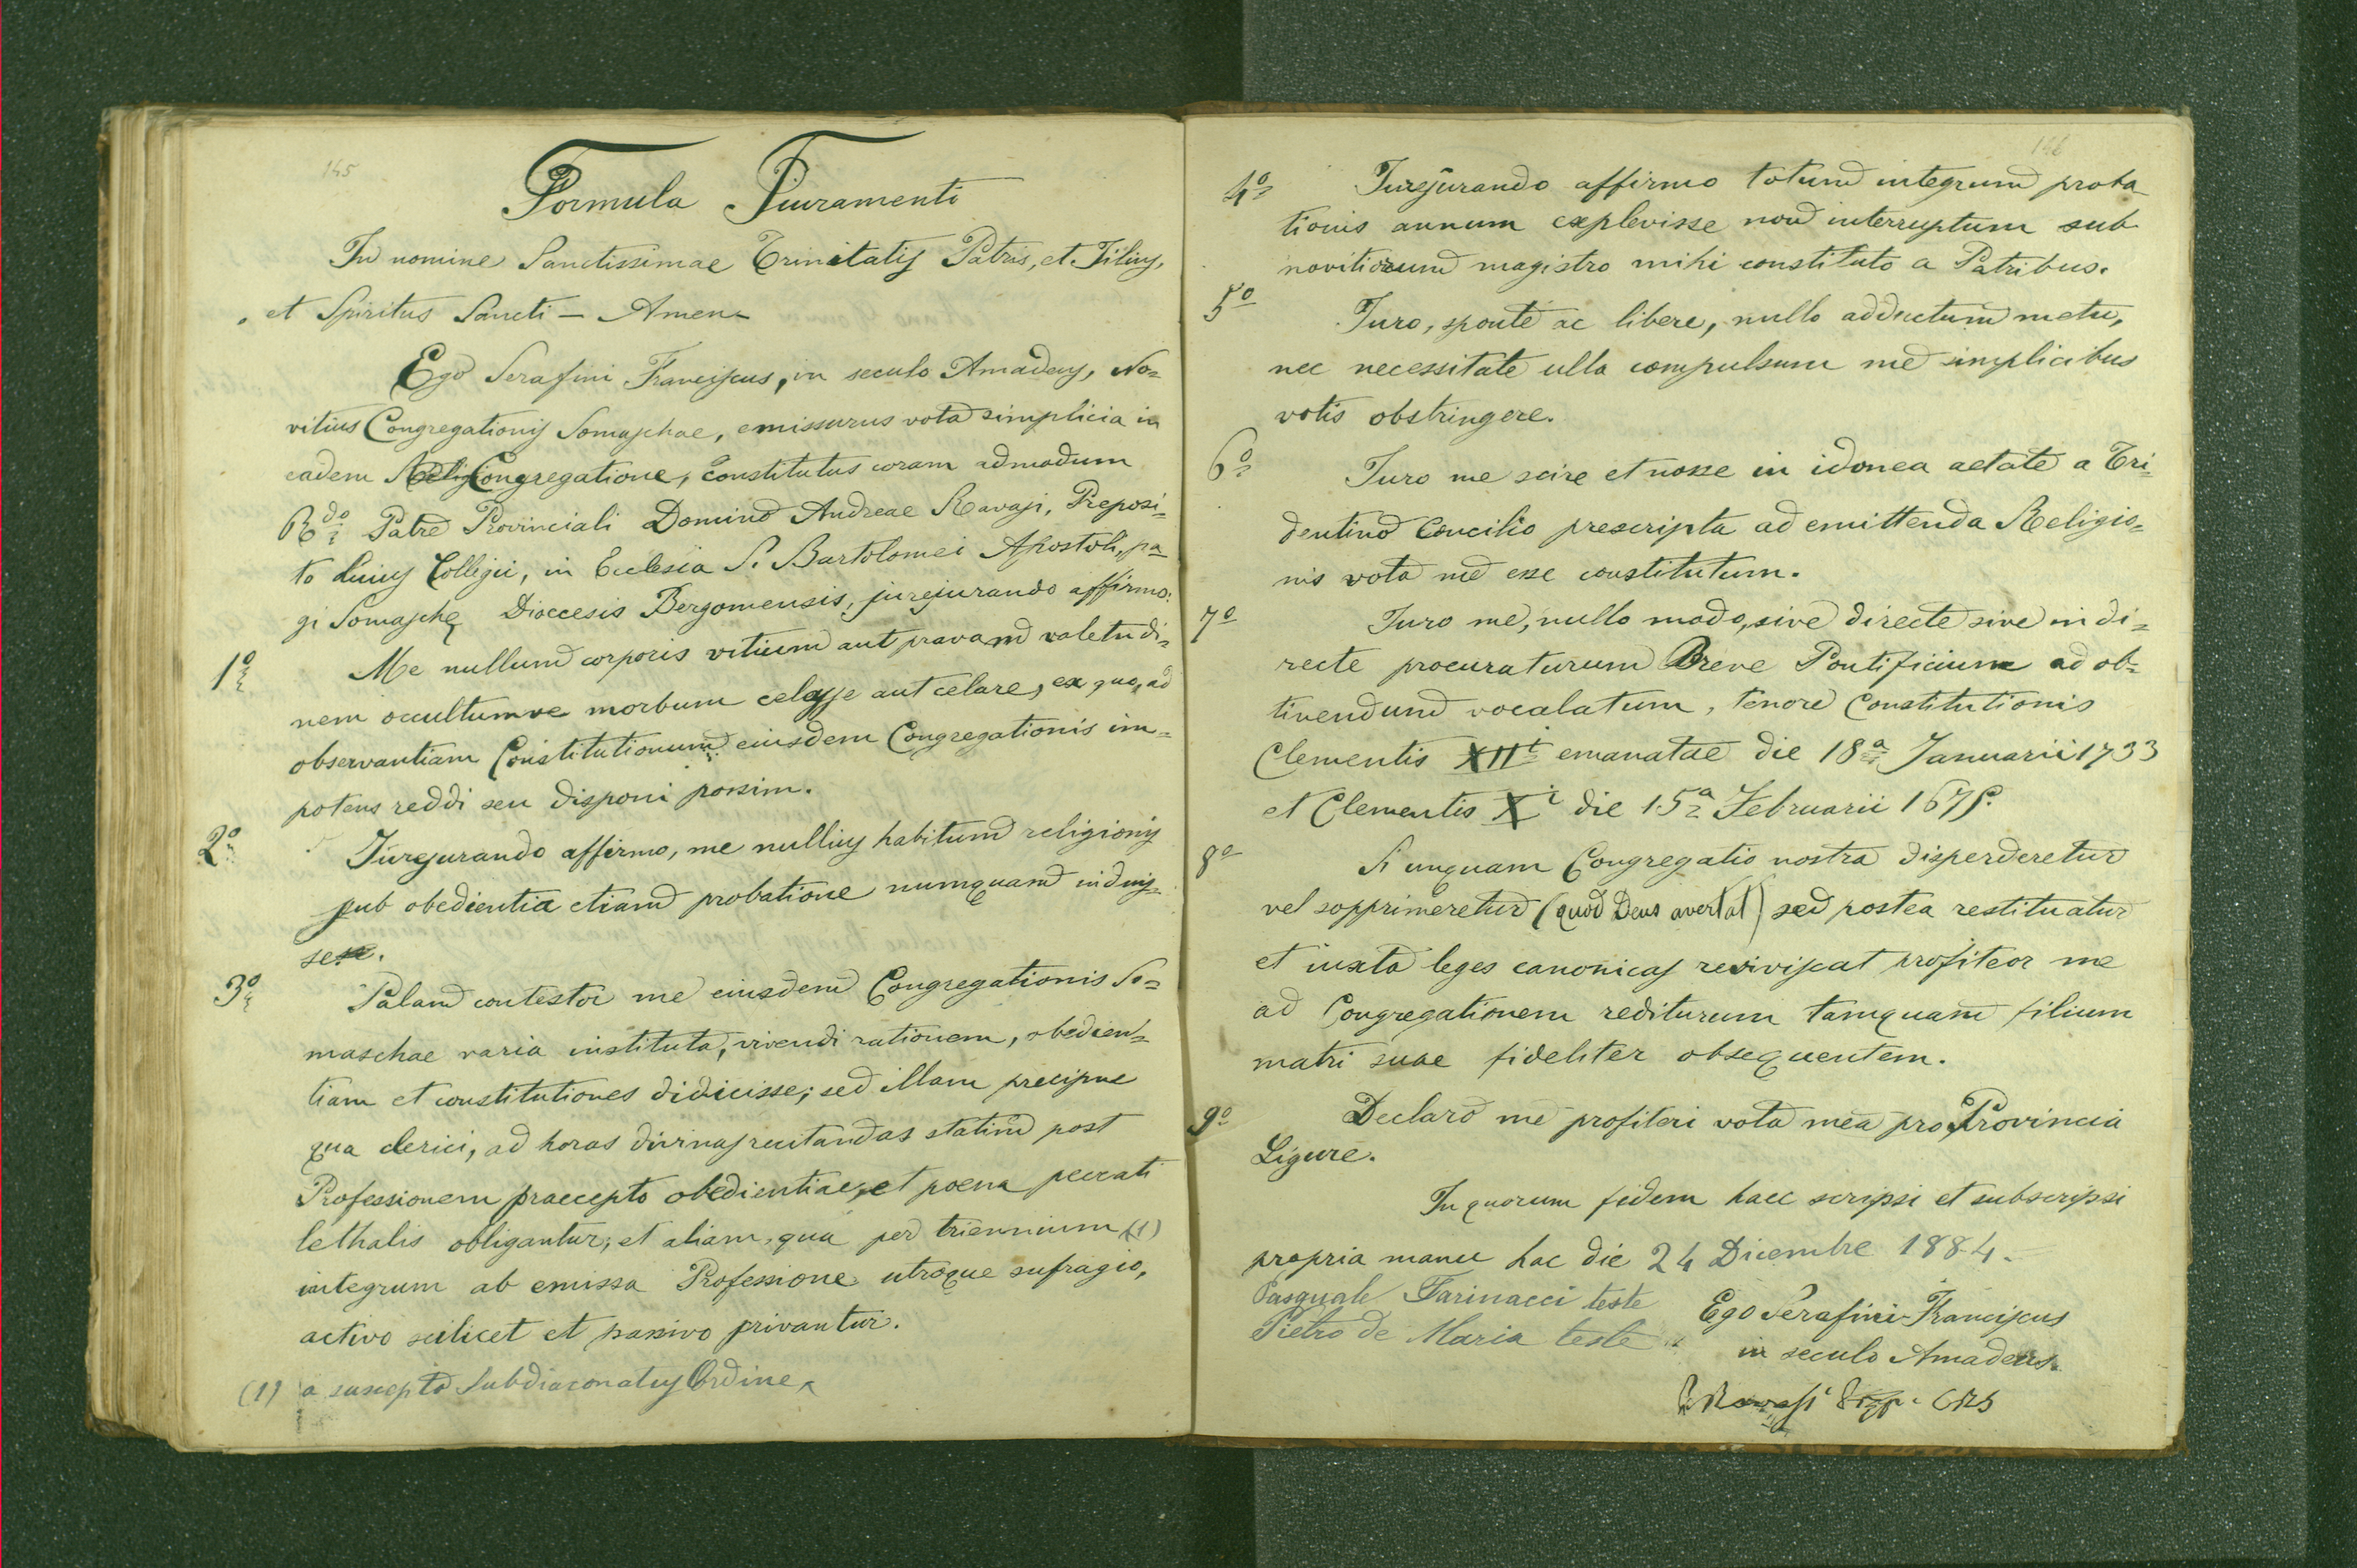 145
Formula Iuramenti
In nomine Sanctissimae Trinitatis Patris, et Filius,
et Spiritus Sancti — Amen
Ego Serafini Franciscus, in seculo Amadeus, No=
vitius Congregationis Somaschae, emissurus vota simplicia in
eadem Congregatione, constitutus coram admodum
R.do Patre Provinciali Domino Andreae Ravasi, Preposi=
to huius Collegii, in Ecclesia S. Bartolomei Apostoli, pa=
gi Somaschę Dioecesis Bergomensis, jurejurando affirmo:
1º Me nullum corporis vitium aut pravam valetudi=
nem occultumve morbum celasse aut celare, ex quo, ad
observantiam Constitutionum eiusdem Congregationis im=
potens reddi seu disponi possim.
2º Jurejurando affirmo, me nullius habitum religionis
sub obedientia etiam probatione numquam induis=
se.
3º Palam contestor me eiusdem Congregationis So=
maschae varia instituta, vivendi rationem, obedien=
tiam et constitutiones didicisse; sed illam precipue
qua clerici, ad horas divinas recitandas statim post
Professionem praecepto obedientiae, et poena peccati
lethalis obligantur; et aliam, qua per triennium (1)
integrum ab emissa Professione utroque sufragio,
activo scilicet et passivo privantur.
(1) a suscepto Subdiaconatus Ordine
146
4º Jurejurando affirmo totum integrum proba
tionis annum explevisse non interruptum sub
novitiorum magistro mihi constituto a Patribus.
5º Juro, sponte ac libere, nullo adductum metu,
nec necessitate ulla compulsum me simplicibus
votis obstringere.
6º Juro me scire et nosse in idonea aetate a Tri=
dentino Concilio prescripta ad emittenda Religio=
nis vota me esse constitutum.
7º Juro me, nullo modo, sive directe sive indi=
recte procuraturum Breve Pontificium ad ob=
tinendum vocalatum, tenore Constitutionis
Clementis XIIi emanatae die 18a Januarii 1733
et Clementis Xi die 15a Februarii 1675.
8º Si unquam Congregatio nostra disperderetur
vel sopprimeretur (quod Deus avertat) sed postea restituatur
et iuxta leges canonicas reviviscat profiteor me
ad Congregationem rediturum tamquam filium
matri suae fideliter obsequentem.
9º Declaro me profiteri vota mea pro Provincia
Ligure.
In quorum fidem haec scripsi et subscripsi
propria manu hac die 24 Dicembre 1884.
Pasquale Farinacci teste
Pietro de Maria teste
Ego Serafini Franciscus
in seculo Amadeus
Ravasi CRS